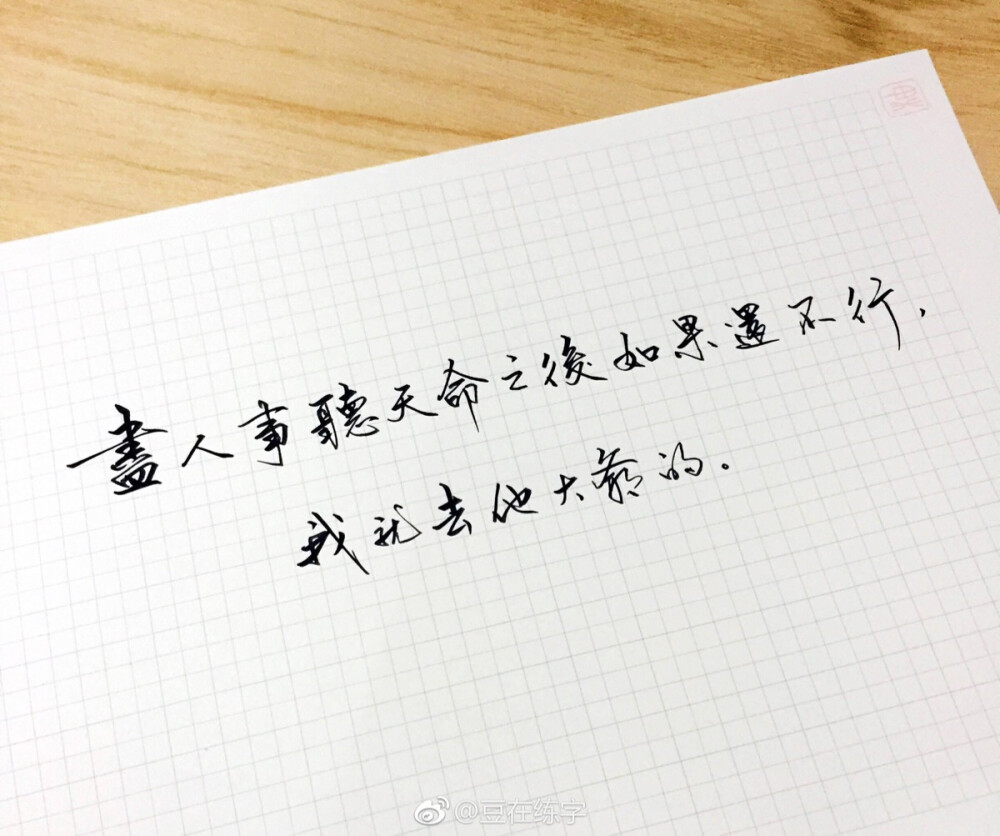 盡人事聽天命之後如果還不行，
我就去他大爺的。
@豆在练字